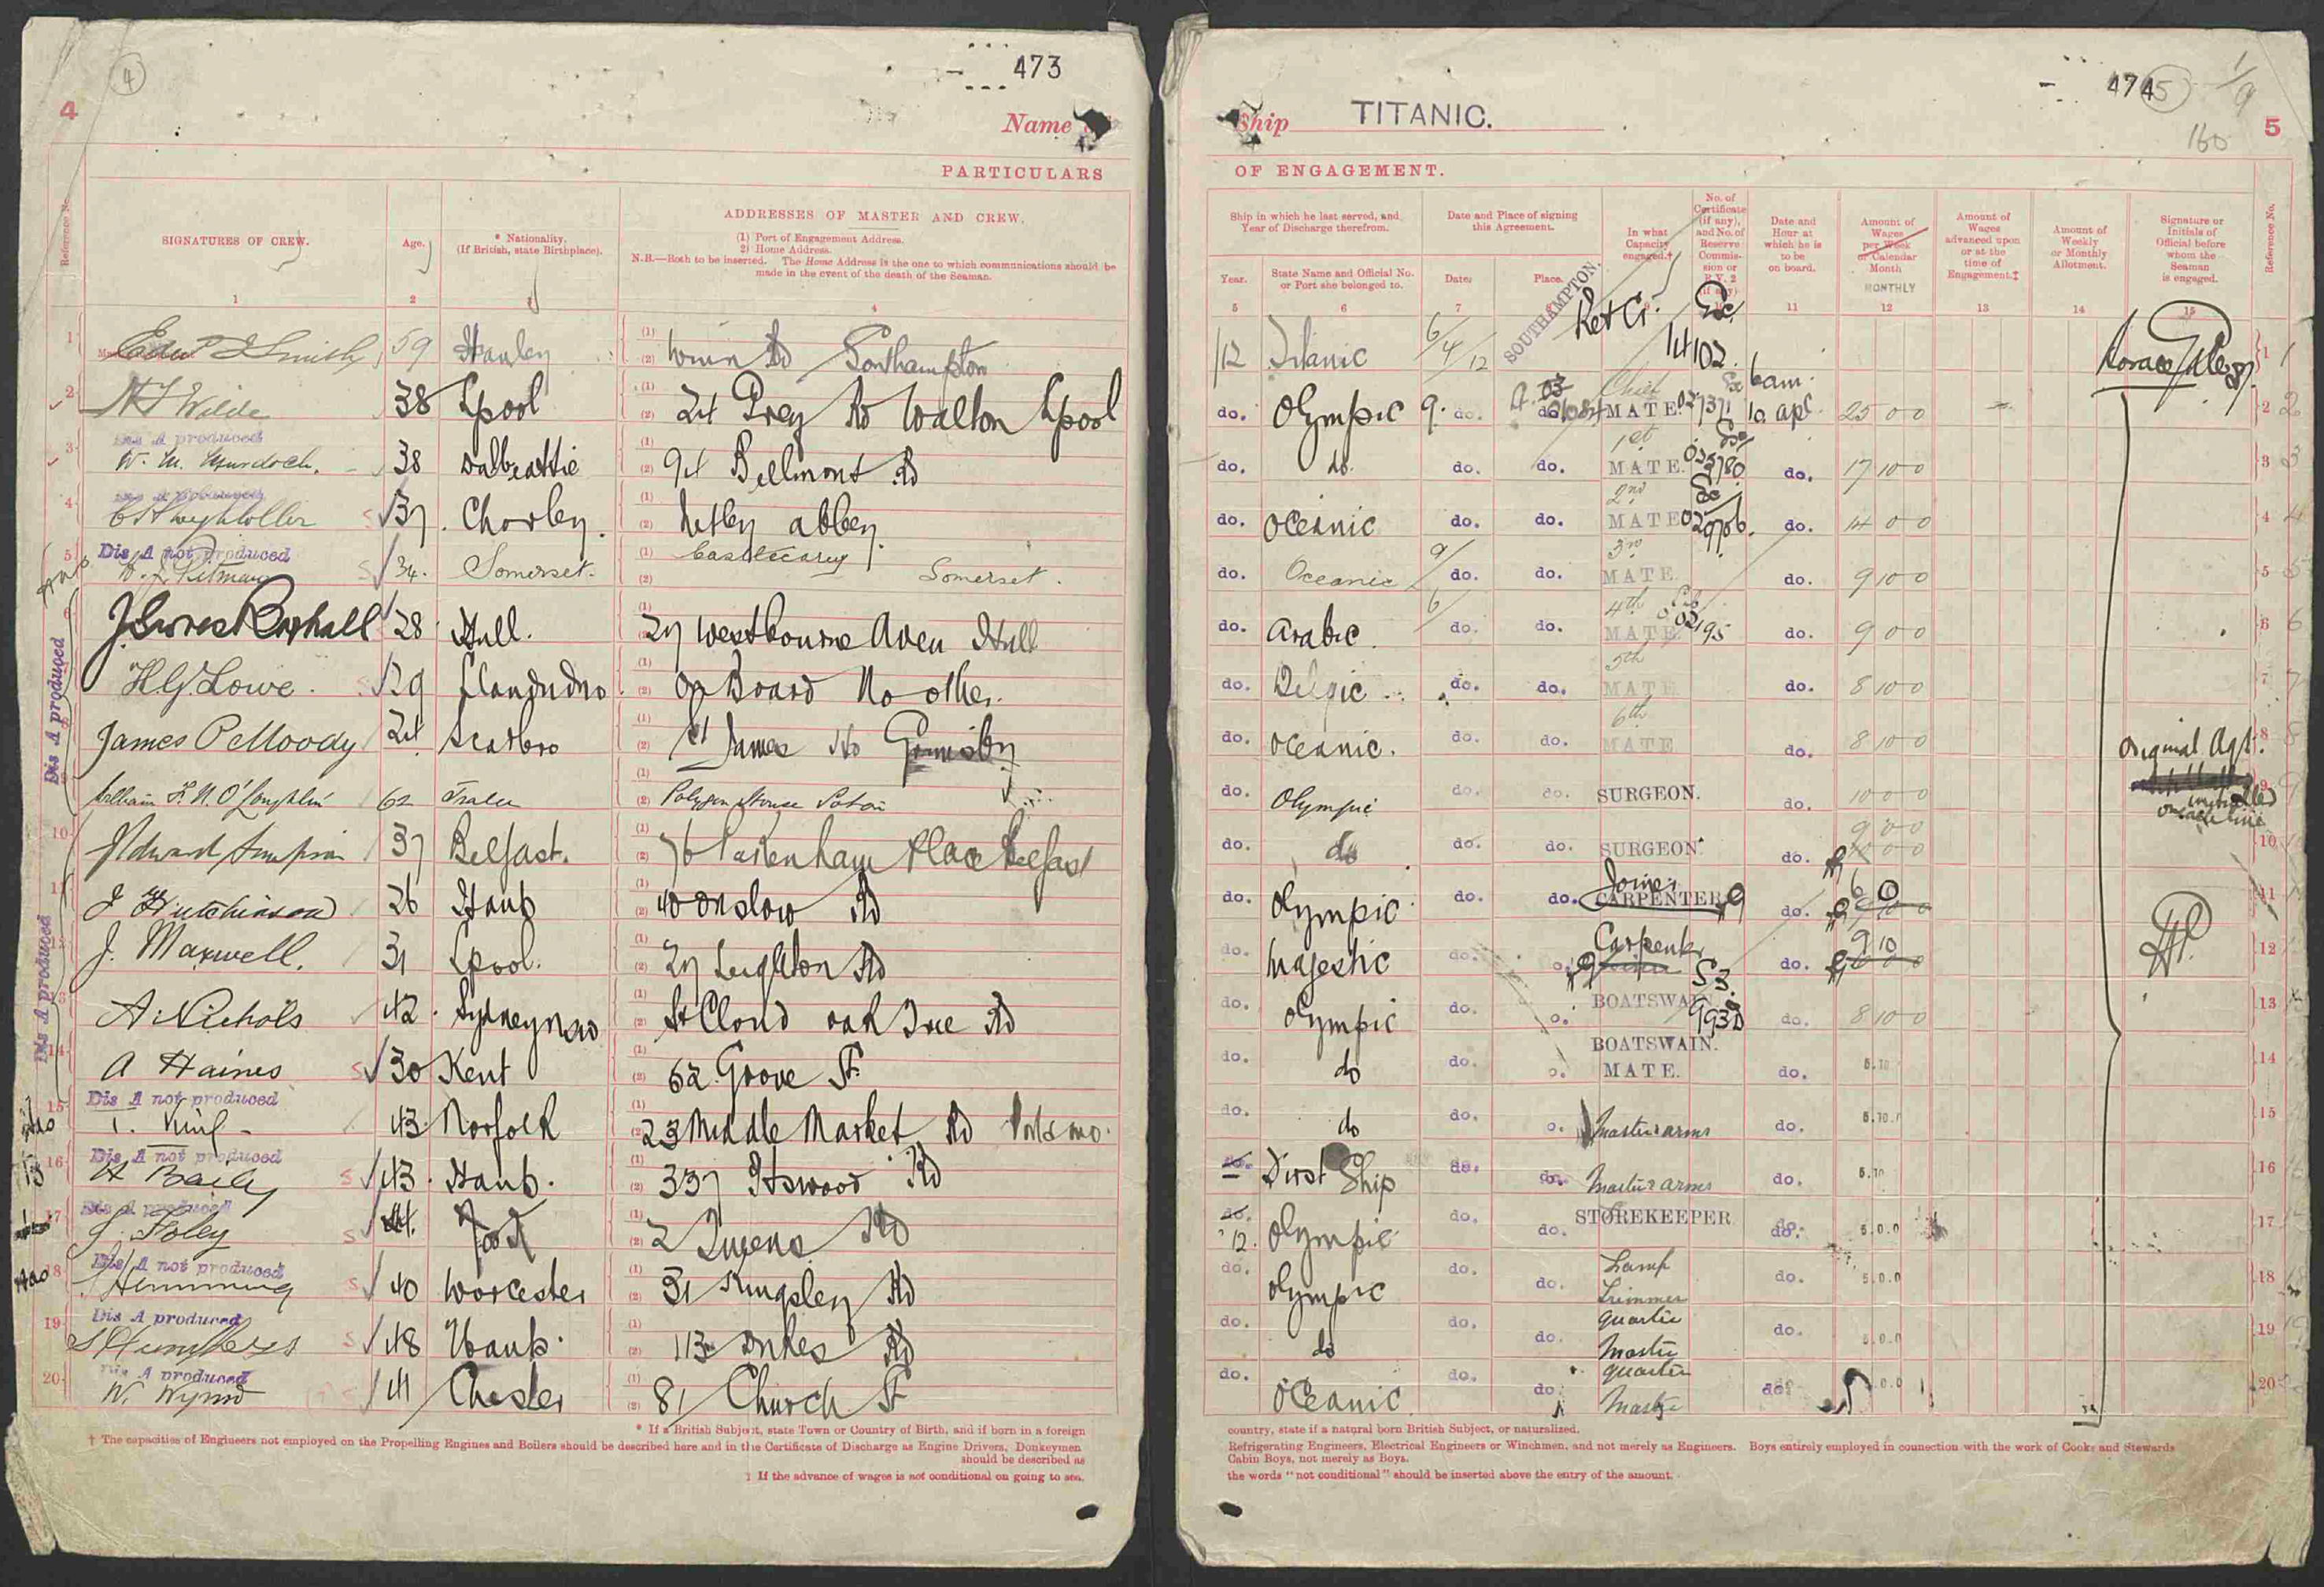 4
473
4
Name of
PARTICULARS
Reference No.
SIGNATURES OF CREW.
Age.
* Nationality.
(If British, state Birthplace).
ADDRESSES OF MASTER AND CREW.
(1) Port of Engagement Address.
2) Home Address.
N.B.—Both to be inserted. The Home Address is the one to which communications should be
made in the event of the death of the Seaman.
1 2 4
1 Edw J Smith 59 Hanley (1) (2) Winn Rd Southampton
2 H T Wilde 38 Lpool (1) (2) 24 Grey Rd Walton Lpool
Dis A produced
3 W. M. Murdoch. 38 Dalbeattie (1) (2) 94 Bellmont Rd
4 C H Lightoller 37 Chorley (1) (2) Netley abbey
Dis A not produced
5 H. J. Pitman 34. Somerset. (1) Castlecarey (2) Somerset.
6 J Groves Boxhall 28 Hull. (1) 27 Westbourne Aven Hull
Dis A produced
H.G. Lowe. 29 Llandudno (1) (2) On Board No other.
James P Moody 24 Scarbro (1) (2) St James Ho Grimsby
William F. N. O'Loughlin 62 Tralee (1) (2) Polygon House Soton
10 J Edward Simpson 37 Belfast. (1) (2) Pakenham Place Belfast
11 J Hutchinson 26 Hants (1) (2) 40 Onslow Rd
J. Maxwell. 31 Lpool. (1) (2) 27 Leighton Rd
Dis A produced
A Nichols 42 Sydney (1) (2) St Cloud oak Tree Rd
14 A Haines 30 Kent (1) (2) 62 Grove St.
Dis A not produced
15 T. King 43 Norfolk (1) (2) 23 Middle Market Rd
Dis A not produced
16 H Bailey 43 Hants. (1) (2) Rd
Dis A produced
17 J. Foley 44. (1) (2) 2 Queens Rd
Dis A not produced
18 S Hemming 40 Worcester (1) (2) 31 Kingsley Rd
Dis A produced
19 S Humphreys 48 Hants. (1) (2) 113 Dukes Rd
A produced
20 W. Wynn 41 Chester (1) (2) 81 Church St
* If a British Subject, state Town or Country of Birth, and if born in a foreign
† The capacities of Engineers not employed on the Propelling Engines and Boilers should be described here and in the Certificate of Discharge as Engine Drivers, Donkeymen
should be described as
‡ If the advance of wages is not conditional on going to sea.
474
5
1/9
160
5
Ship TITANIC.
OF ENGAGEMENT.
Ship in which he last served, and
Year of Discharge therefrom.
Year.
State Name and Official No.
or Port she belonged to.
Date and Place of signing
this Agreement.
Date.
Place.
In what
Capacity
engaged.†
No. of
Certificate
(if any),
and No. of
Reserve
Commis-
sion or
R.V. 2
(if any)
Date and
Hour at
which he is
to be
on board.
Amount of
Wages
per Week
or Calendar
Month
MONTHLY
Amount of
Wages
advanced upon
or at the
time of
Engagement.‡
Amount of
Weekly
or Monthly
Allotment.
Signature or
Initials of
Official before
whom the
Seaman
is engaged.
Reference No.
5 6 7 11 12 13 14 15
SOUTHAMPTON.
1/12 Titanic 6/4/12 14102. 1
do. Olympic 9. do. Chief MATE. 6am. 10 apl. 25 0 0 2
do. do. do. do. 1st MATE. do. 17 10 0 3
do. Oceanic do. do. 2nd MATE do. 14 0 0 4
do. Oceanic 9/ do. do. 3rd MATE do. 9 10 0 5
do. Arabic. 6/ do. do. 4th MATE do. 9 0 0 6
do. Belgic do. do. 5th MATE do. 8 10 0 7
do. Oceanic. do. do. 6th MATE do. 8 10 0 8
Original Agt.
do. Olympic do. do. SURGEON. do. 10 0 0 9
do. do do. do. SURGEON. do. 9 0 0 10
do. Olympic do. do. Joiner CARPENTER do. 6 0 11
do. Majestic do. Carpenter do. 9 10 12
do. Olympic do. BOATSWAIN. do. 8 10 0 13
do. do do. BOATSWAIN. MATE. do. 5.10 14
do. do do. Master arms do. 5.10. 15
do. First Ship do. do. Master arms do. 5.10 16
do. 12. Olympic do. do. STOREKEEPER do. 5.0.0 17
do. Olympic do. do. Lamp Trimmer do. 5.0.0 18
do. do do. do. Quarter Master do. 5.0.0 19
do. Oceanic do. do. Quarter Master do. .0.0 20
country, state if a natural born British Subject, or naturalized.
Refrigerating Engineers, Electrical Engineers or Winchmen, and not merely as Engineers. Boys entirely employed in connection with the work of Cooks and Stewards
Cabin Boys, not merely as Boys.
the words "not conditional" should be inserted above the entry of the amount.